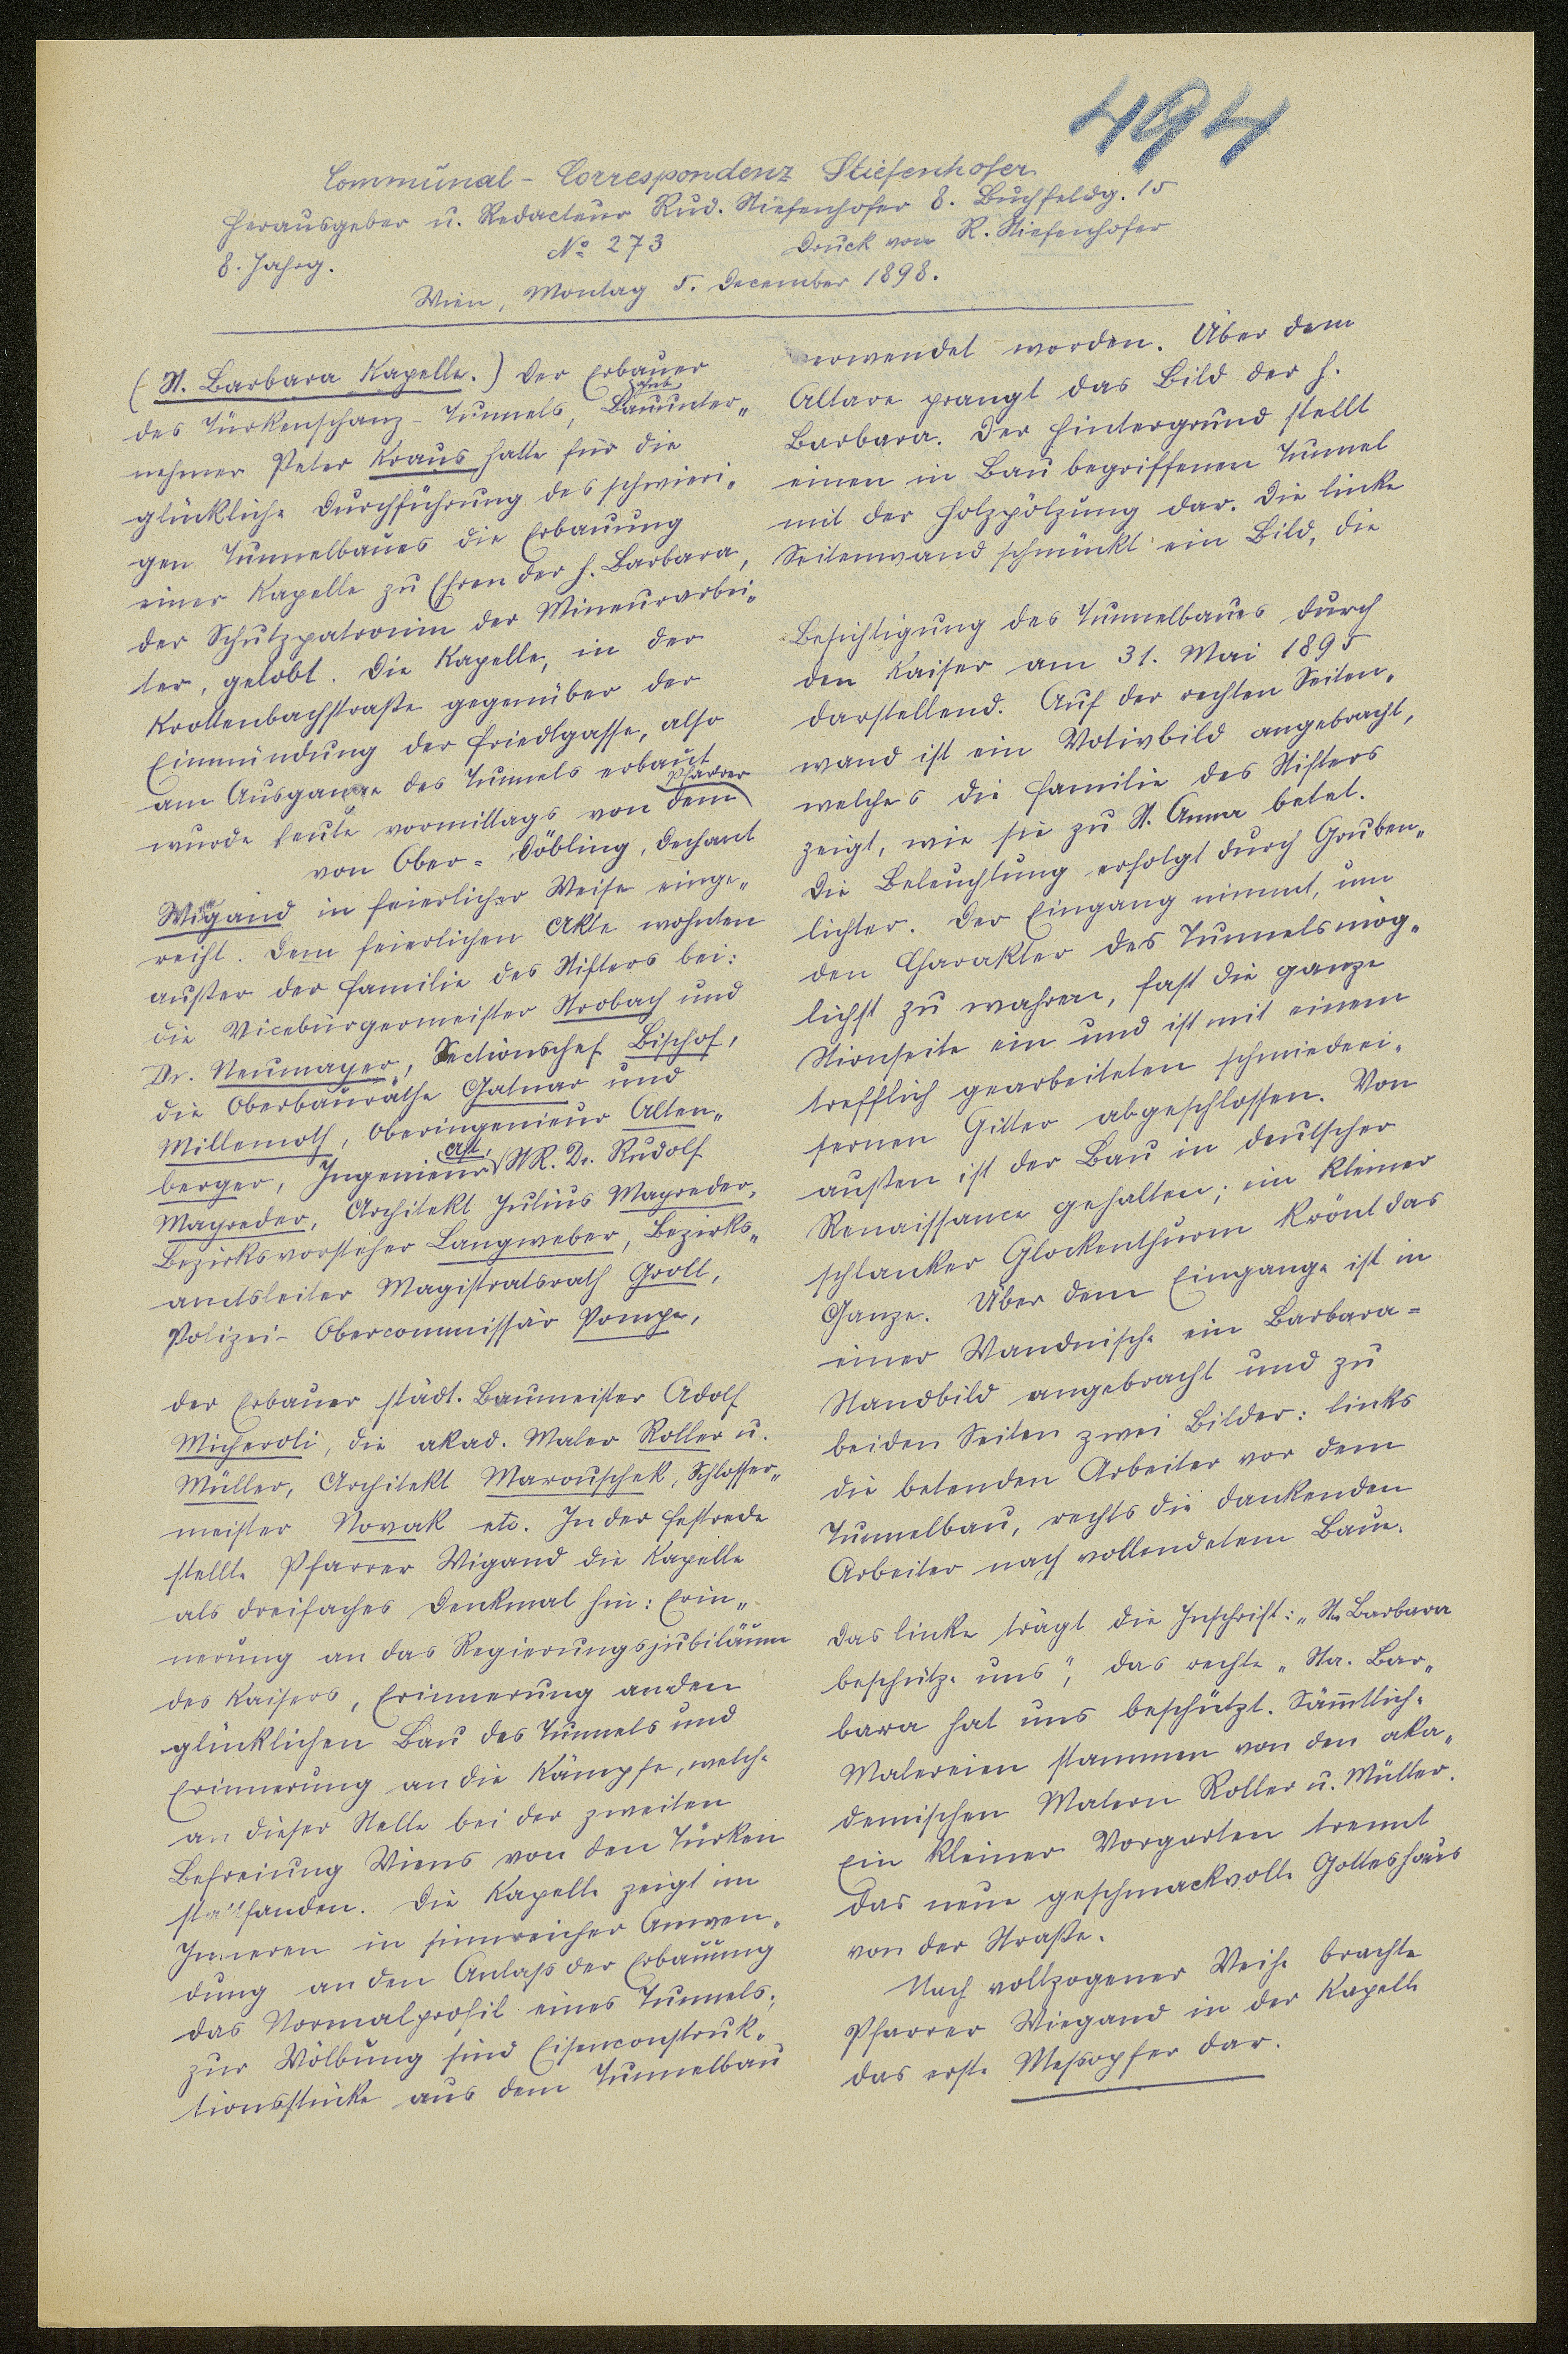 494
Communal-Correspondenz Stiefenhofer
Herausgeber u. Redacteur Rud. Stiefenhofer 8. Buchfeldg. 15
8. Jahrg. No 273 Druck von R. Stiefenhofer
Wien, Montag 5. December 1898.
(St. Barbara Kapelle.) Der Erbauer
des Türkenschanz-Tunnels, Bauunter-
nehmer Peter Kraus hatte für die
glückliche Durchführung des schwieri-
gen Tunnelbaues die Erbauung
einer Kapelle zu Ehren der h. Barbara,
der Schutzpatronin der Mineurarbei-
ter, gelobt. Die Kapelle, in der
Krottenbachstraße gegenüber der
Einmündung der Friedlgasse, also
am Ausgange des Tunnels erbaut
wurde heute vormittags von dem Pfarrer
von Ober-Döbling, Dechant
Wigand in feierlicher Weise einge-
weiht. Dem feierlichen Akte wohnten
außer der Familie des Stifters bei:
die Vicebürgermeister Strobach und
Dr. Neumayer, Sectionschef Bischof,
die Oberbauräthe Gatnar und
Millemoth, Oberingenieur Alten-
berger, Ingenieur Ast, StR. Dr. Rudolf
Mayreder, Architekt Julius Mayreder,
Bezirksvorsteher Langweber, Bezirks-
amtsleiter Magistratsrath Groll,
Polizei-Obercommissär Pompe,
der Erbauer städt. Baumeister Adolf
Micheroli, die akad. Maler Roller u.
Müller, Architekt Marouschek, Schlosser-
meister Novak etc. In der Festrede
stellte Pfarrer Wigand die Kapelle
als dreifaches Denkmal hin: Erin-
nerung an das Regierungsjubiläum
des Kaisers, Erinnerung an den
glücklichen Bau des Tunnels und
Erinnerung an die Kämpfe, welche
an dieser Stelle bei der zweiten
Befreiung Wiens von den Türken
stattfanden. Die Kapelle zeigt im
Inneren in sinnreicher Anwen-
dung an den Anlaß der Erbauung
das Normalprofil eines Tunnels;
zur Wölbung sind Eisenconstruk-
tionsstücke aus dem Tunnelbau
verwendet worden. Über dem
Altare prangt das Bild der h.
Barbara. Der Hintergrund stellt
einen in Bau begriffenen Tunnel
mit der Holzpölzung dar. Die linke
Seitenwand schmückt ein Bild, die
Besichtigung des Tunnelbaues durch
den Kaiser am 31. Mai 1895
darstellend. Auf der rechten Seiten-
wand ist ein Votivbild angebracht,
welches die Familie des Stifters
zeigt, wie sie zu St. Anna betet.
Die Beleuchtung erfolgt durch Gruben-
lichter. Der Eingang nimmt, um
den Charakter des Tunnels mög-
lichst zu wahren, fast die ganze
Stirnseite ein und ist mit einem
trefflich gearbeiteten schmiedeei-
sernen Gitter abgeschlossen. Von
außen ist der Bau in deutscher
Renaissance gehalten; ein kleiner
schlanker Glockenthurm krönt das
Ganze. Über dem Eingange ist in
einer Wandnische ein Barbara-
Standbild angebracht und zu
beiden Seiten zwei Bilder: links
die betenden Arbeiter vor dem
Tunnelbau, rechts die dankenden
Arbeiter nach vollendetem Baue.
Das linke trägt die Inschrift: „Sta. Barbara
beschütze uns", das rechte „Sta. Bar-
bara hat uns beschützt. Sämmtliche
Malereien stammen von den aka-
demischen Malern Roller u. Müller.
Ein kleiner Vorgarten trennt
das neue geschmackvolle Gotteshaus
von der Straße.
Nach vollzogener Weihe brachte
Pfarrer Wiegand in der Kapelle
das erste Meßopfer dar.